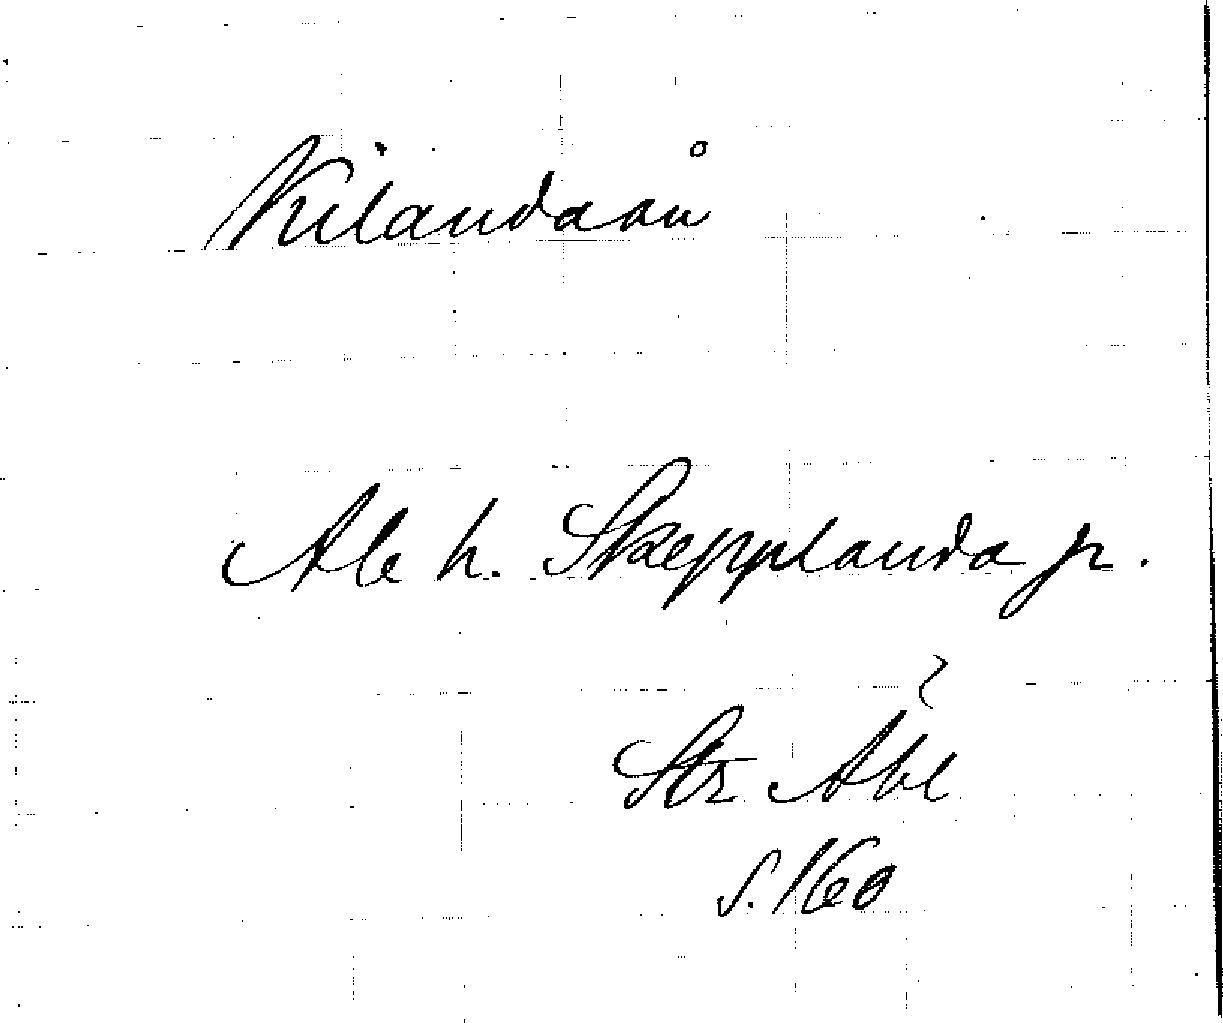 Kilandaån
Ale h. Skepplanda sn.
Str Ale
s. 160